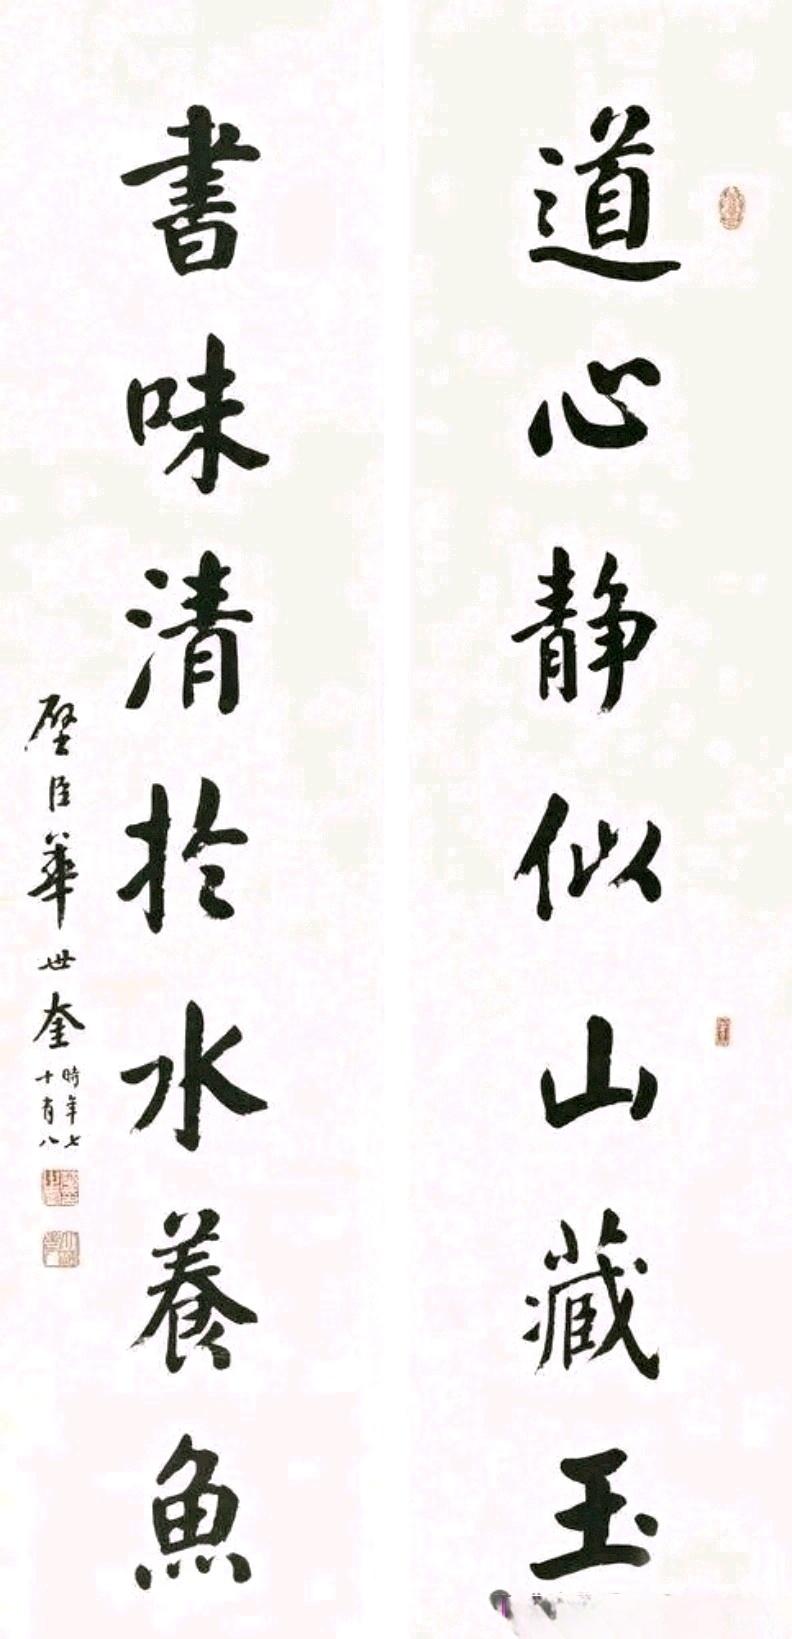 道心静似山藏玉
書味清於水養魚
璧臣華世奎
時年七
十有八